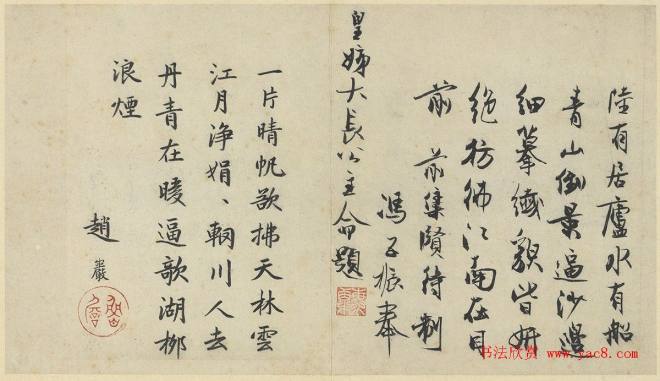 陸有居廬水有船
青山倒景逼沙邊
細摹纖貌皆妍
絕彷彿江南在目
前 前集賢待制
馮子振奉
皇姊大長公主命題
一片晴帆欲拂天林雲
江月淨娟〻輞川人去
丹青在暖逼歌湖柳
浪煙
趙巖
书法欣赏 www.yac8.com